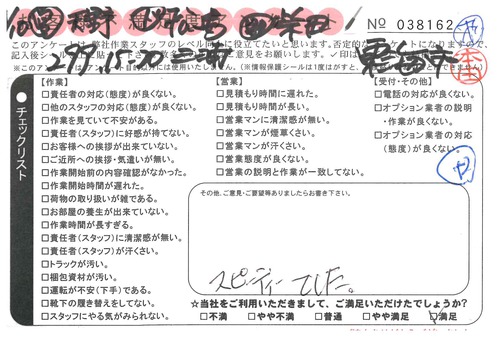 No 038162
このアンケートは、弊社作業スタッフのレベル向上に役立てたいと思います。否定的なアンケートになりますので、
【作業】
□責任者の対応(態度)が良くない。
□他のスタッフの対応(態度)が良くない。
□作業を見ていて安心がある。
□責任者(スタッフ)に好感が持てない。
□お客様への挨拶が出来ていない。
□ご近所への挨拶・気遣いが無い。
□作業開始前の内容確認がなかった。
□作業開始時間が遅れた。
□荷物の取り扱いが雑である。
□お部屋の養生が出来ていない。
□作業時間が長すぎる。
□責任者(スタッフ)に清潔感が無い。
□責任者(スタッフ)が汗くさい。
□トラックが汚い。
□梱包資材が汚い。
□運転が不安(下手)である。
□靴下の履き替えをしてない。
□スタッフにやる気がみられない。
【営業】
□見積もり時間に遅れた。
□見積もり時間が長い。
□営業マンに清潔感が無い。
□営業マンが煙草くさい。
□営業マンが汗くさい。
□営業態度が良くない。
□営業の説明と作業が一致してない。
【受付・その他】
□電話の対応が良くない。
□オプション業者の説明
・作業が良くない。
□オプション業者の対応
(態度)が良くない。
チェックリスト
その他、ご意見・ご要望等ありましたらお書き下さい。
スピーディーでした。
☆当社をご利用いただきまして、ご満足いただけたでしょうか?
□不満 □やや不満 □普通 □やや満足 □満足